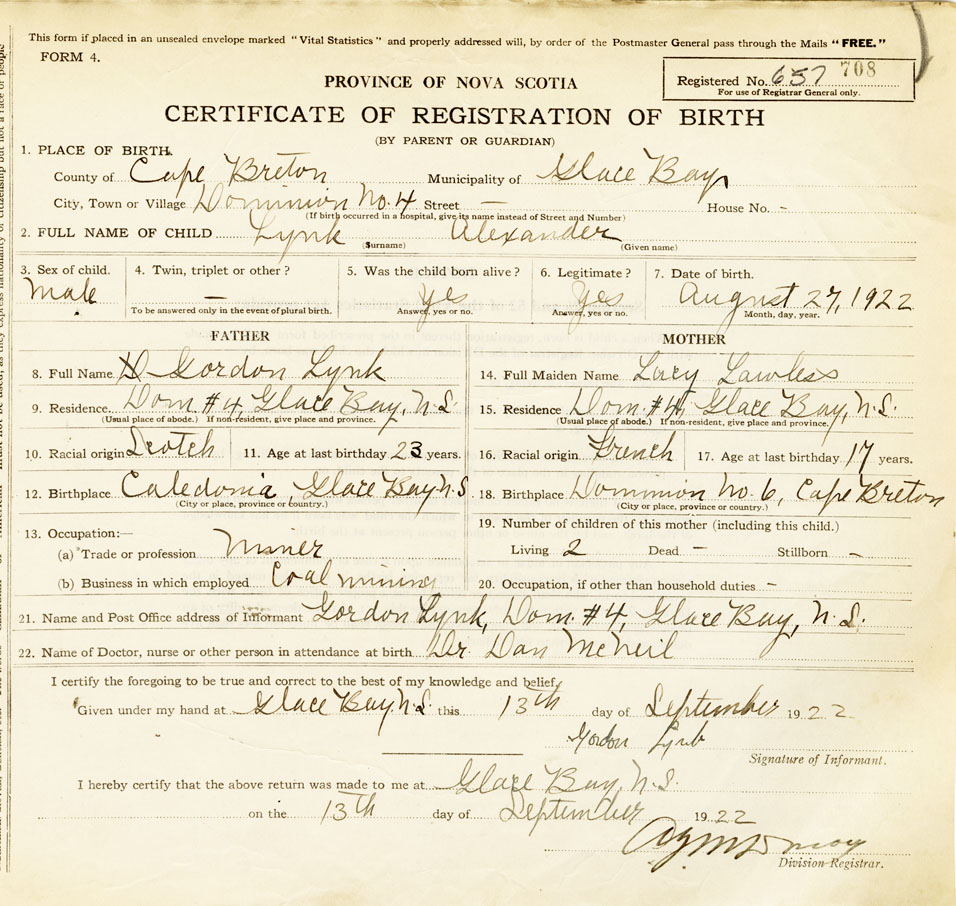 This form if placed in an unsealed envelope marked "Vital Statistics" and properly addressed will, by order of the Postmaster General pass through the Mails "FREE."
FORM 4.
Registered No. 657 708
For use of Registrar General only.
PROVINCE OF NOVA SCOTIA
CERTIFICATE OF REGISTRATION OF BIRTH
(BY PARENT OR GUARDIAN)
1. PLACE OF BIRTH.
County of Cape Breton Municipality of Glace Bay
City, Town or Village Dominion No. 4 Street — House No. -
(If birth occurred in a hospital, give its name instead of Street and Number)
2. FULL NAME OF CHILD Lynk Alexander
(Surname) (Given name)
3. Sex of child. 4. Twin, triplet or other? 5. Was the child born alive? 6. Legitimate? 7. Date of birth.
Male — Yes Yes August 27, 1922
To be answered only in the event of plural birth. Answer, yes or no. Answer, yes or no. Month, day, year.
FATHER MOTHER
8. Full Name D Gordon Lynk 14. Full Maiden Name Lucy Lawless
9. Residence Dom #4, Glace Bay, N.S. 15. Residence Dom #4, Glace Bay, N.S.
(Usual place of abode.) If non-resident, give place and province. (Usual place of abode.) If non-resident, give place and province.
10. Racial origin Scotch 11. Age at last birthday 23 years. 16. Racial origin French 17. Age at last birthday 17 years.
12. Birthplace Caledonia, Glace Bay N.S. 18. Birthplace Dominion No. 6, Cape Breton
(City or place, province or country.) (City or place, province or country.)
13. Occupation:— 19. Number of children of this mother (including this child.)
(a) Trade or profession Miner Living 2 Dead — Stillborn —
(b) Business in which employed Coal mining 20. Occupation, if other than household duties -
21. Name and Post Office address of Informant Gordon Lynk, Dom. #4, Glace Bay, N.S.
22. Name of Doctor, nurse or other person in attendance at birth Dr. Dan McNeil
I certify the foregoing to be true and correct to the best of my knowledge and belief.
Given under my hand at Glace Bay, N.S. this 13th day of September 1922
Gordon Lynk
Signature of Informant.
I hereby certify that the above return was made to me at Glace Bay, N.S.
on the 13th day of September 1922
Division Registrar.